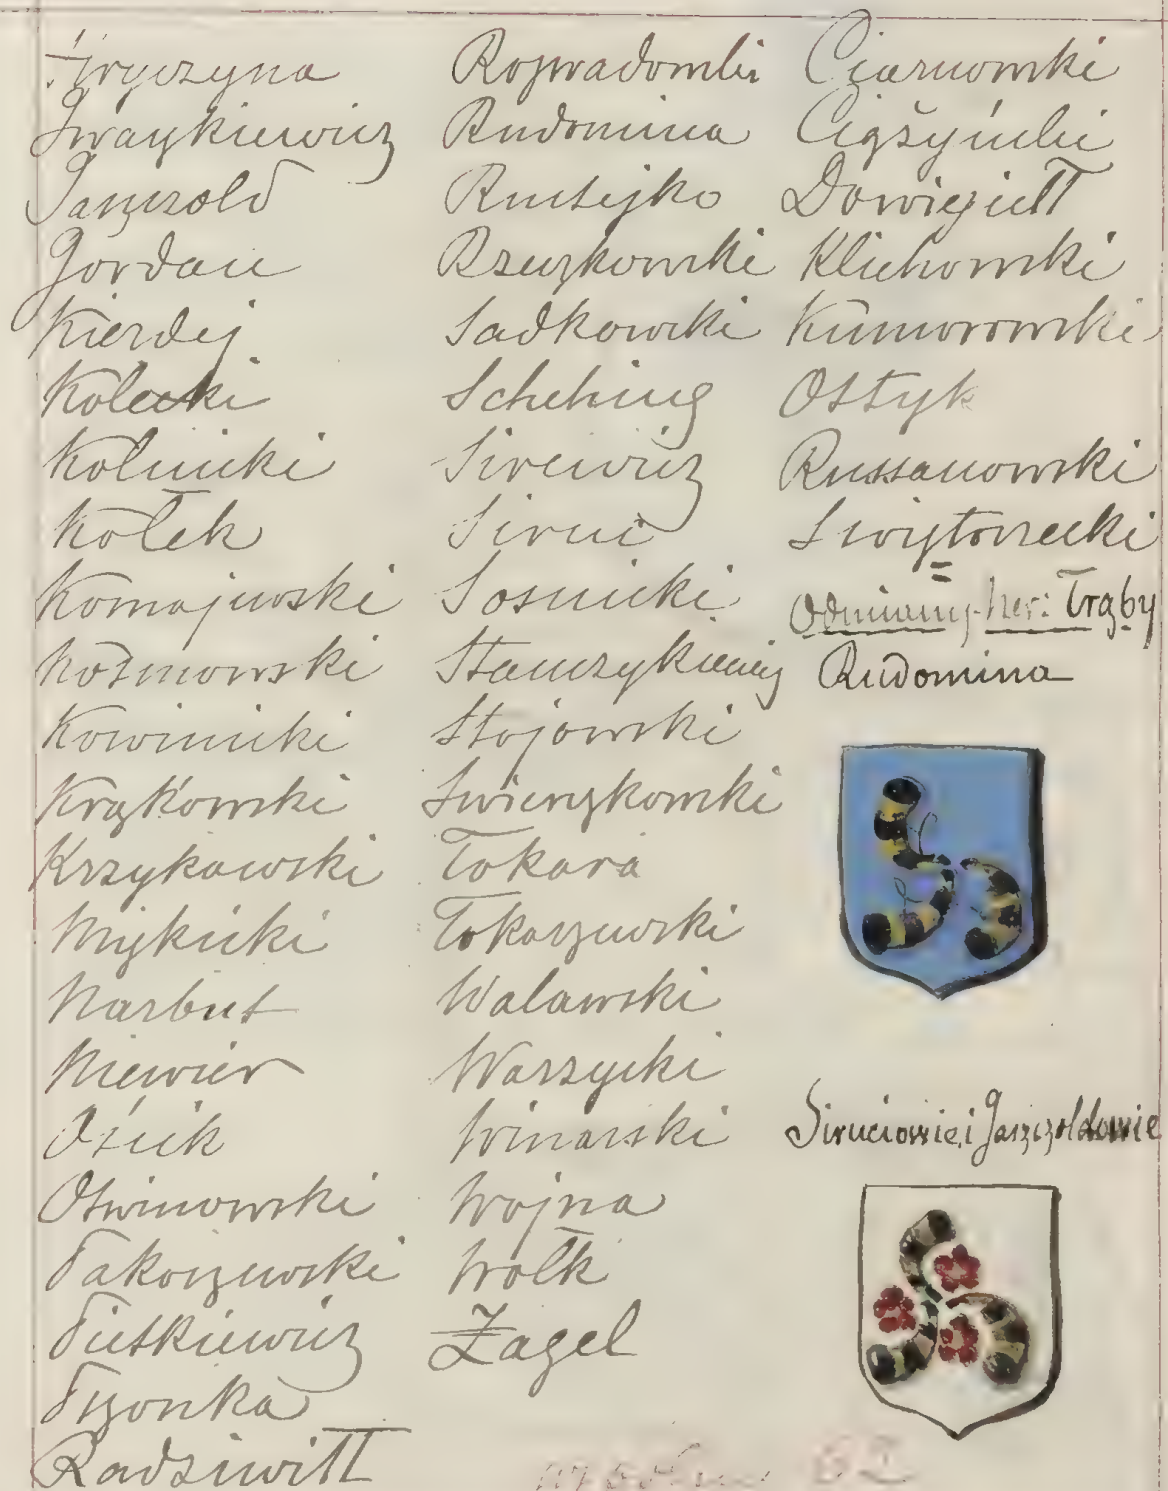 Hryczyna
Iwaszkiewicz
Jaszczołd
Jordan
Kierdej
Kolecki
Kolnicki
Kołek
Komajewski
Koźmowski
Kowinicki
Krąkowski
Krzykawski
Mięknicki
Narbut
Niewier
Osicik
Otwinowski
Pakoszewski
Pietkiewicz
Pszonka
Radziwiłł
Rozwadowski
Rudomina
Rustejko
Rzeszkowski
Sadkowski
Schehing
Sirewicz
Siruć
Sosnicki
Stanczykiewicz
Stojowski
Swierzkowski
Tokara
Tokarzewski
Walawski
Warszycki
Winarski
Wojna
Wołk
Zagel
Czarnowski
Ciąszyński
Dowigiełł
Klichowski
Kumorowski
Ostyk
Russanowski
Swiętorzecki
Odmiany her: Trąby
Rudomina
Siruciowie i Jaszczołdowie
62